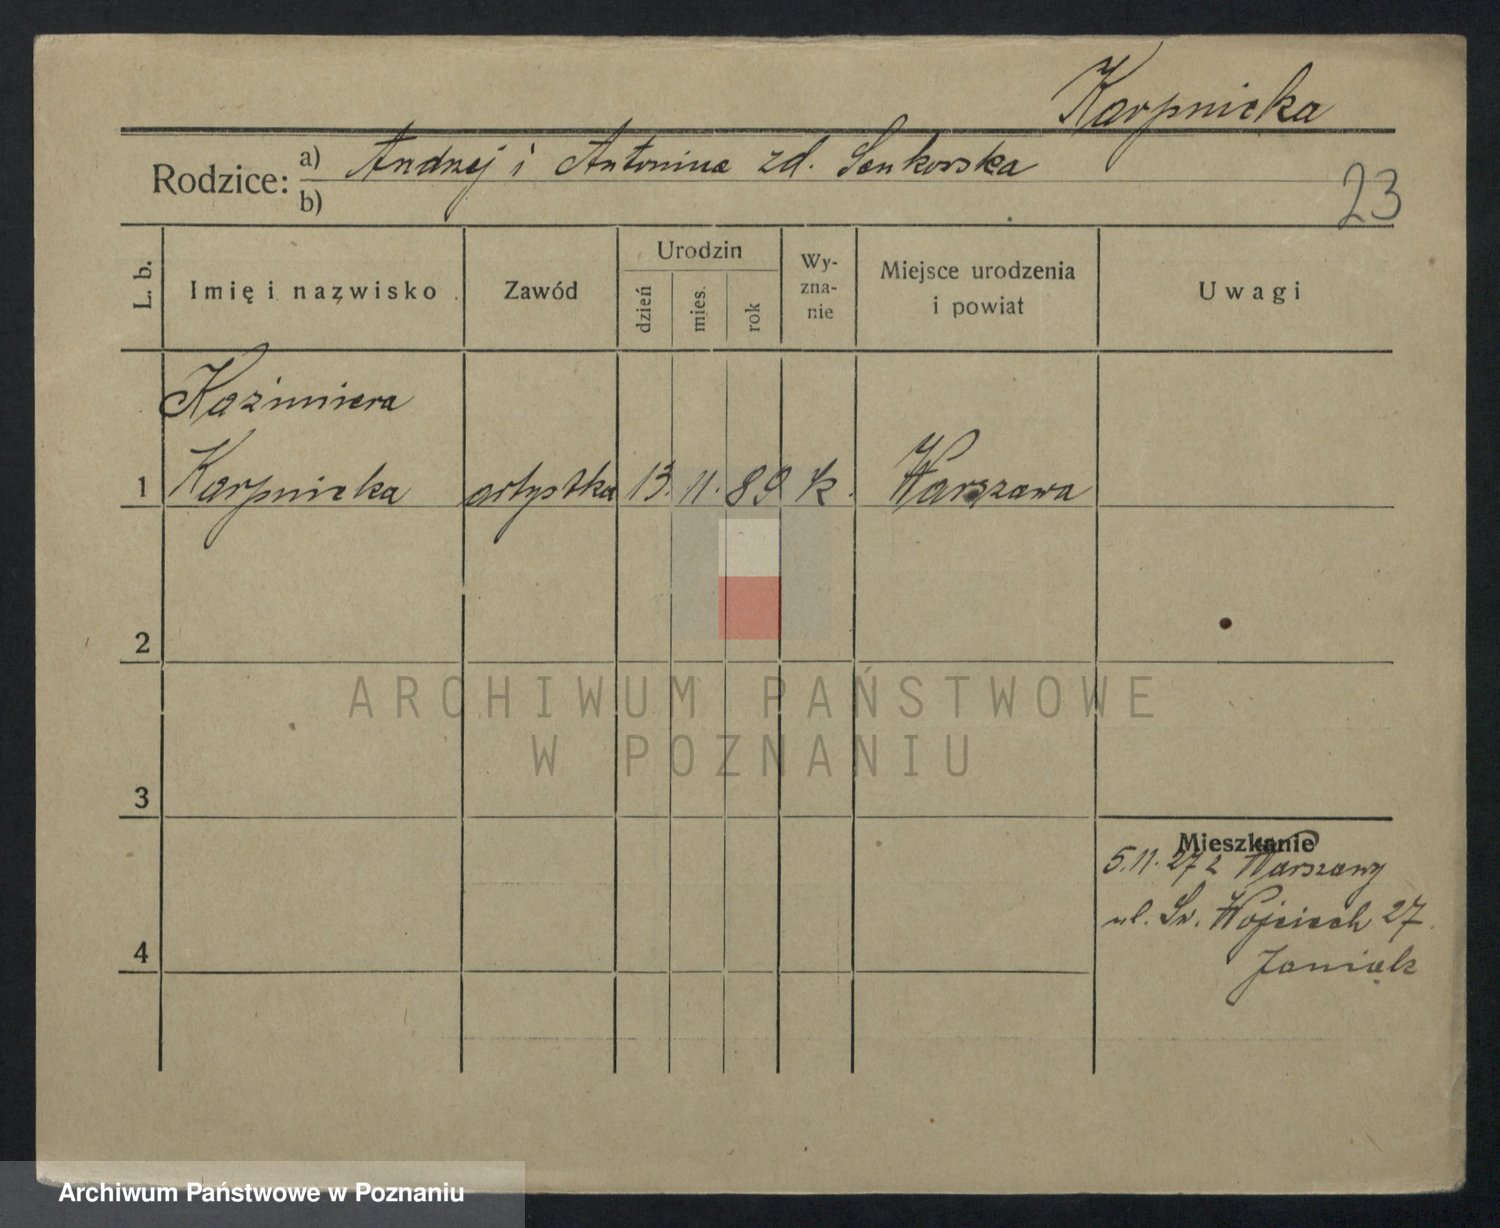 Karpnicka
Rodzice: a) Andrzej i Antonina zd. Senkowska
b)
23
L. b.
Imię i nazwisko
Zawód
Urodzin
dzień
mies.
rok
Wy-
zna-
nie
Miejsce urodzenia
i powiat
Uwagi
Kazimiera
1 Karpnicka artystka 13. 11. 89 k. Warszawa
2
ARCHIWUM PAŃSTWOWE
W POZNANIU
3
Mieszkanie
5.11.27 z Warszawy
ul. Św. Wojciech 27.
4
Janiak
Archiwum Państwowe w Poznaniu